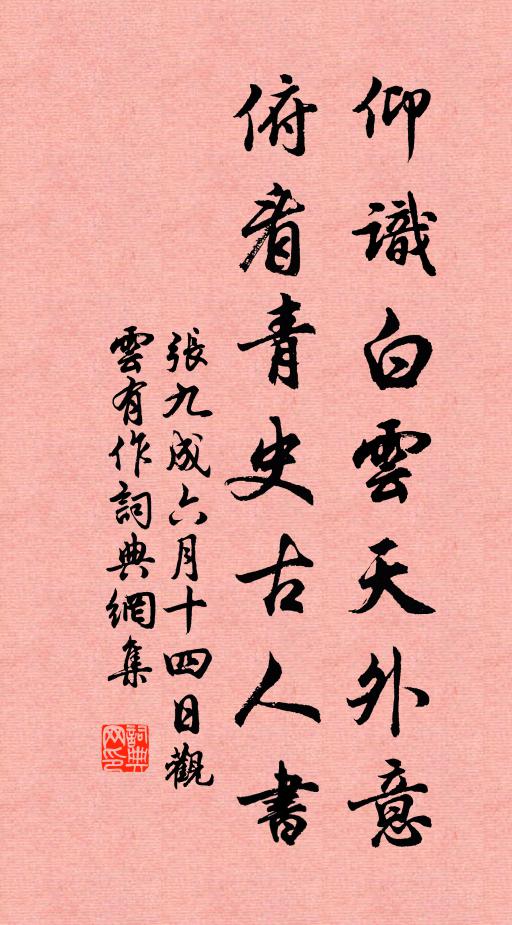 仰識白雲天外意
俯看青史古人書
張九成六月十四日觀
雲有作詞典網集
詞典
网印